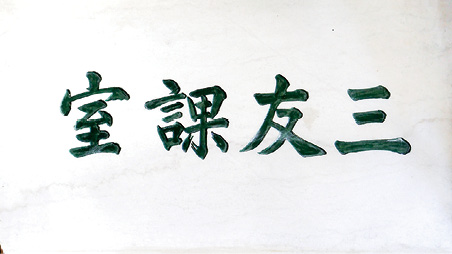 三友課室